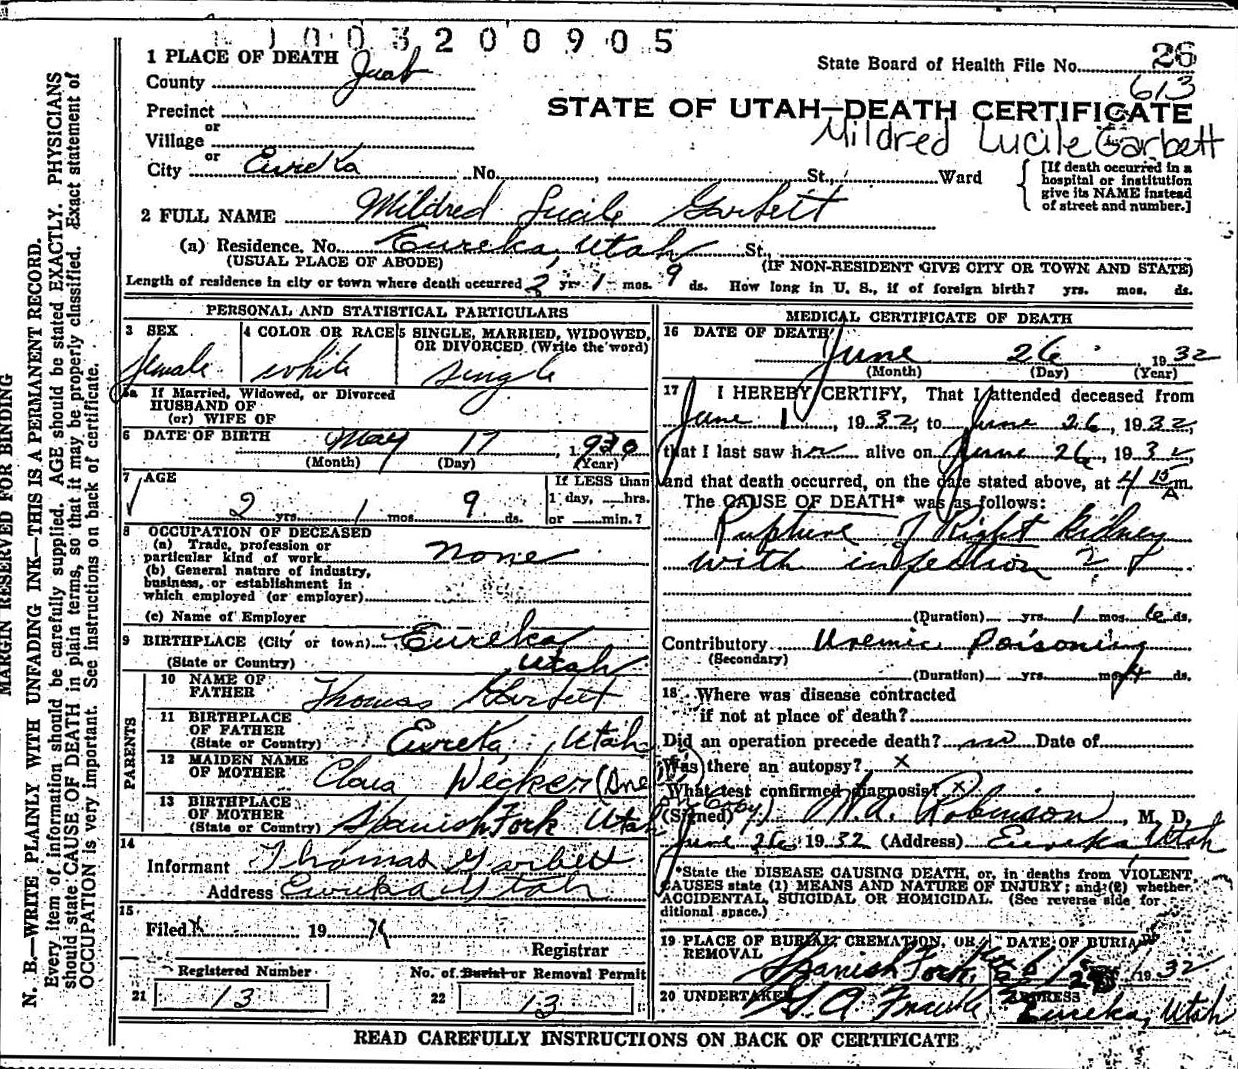 1003200905
1 PLACE OF DEATH
State Board of Health File No. 26
County Juab
613
Precinct
STATE OF UTAH—DEATH CERTIFICATE
or
Mildred Lucile Garbett
Village
or
City Eureka No. , St., Ward
[If death occurred in a hospital or institution give its NAME instead of street and number.]
2 FULL NAME Mildred Lucile Garbett
(a) Residence. No. Eureka, Utah St.,
(USUAL PLACE OF ABODE) (IF NON-RESIDENT GIVE CITY OR TOWN AND STATE)
Length of residence in city or town where death occurred 2 yrs. 1 mos. 9 ds. How long in U. S., if of foreign birth? yrs. mos. ds.
PERSONAL AND STATISTICAL PARTICULARS
3 SEX 4 COLOR OR RACE 5 SINGLE, MARRIED, WIDOWED,
OR DIVORCED (Write the word)
female white single
5a If Married, Widowed, or Divorced
HUSBAND OF
(or) WIFE OF
6 DATE OF BIRTH May 17, 1930
(Month) (Day) (Year)
7 AGE
If LESS than
1 day, hrs.
2 yrs. 1 mos. 9 ds. or min.?
8 OCCUPATION OF DECEASED
(a) Trade, profession or
particular kind of work none
(b) General nature of industry,
business, or establishment in
which employed (or employer)
(c) Name of Employer
9 BIRTHPLACE (City or town) Eureka
(State or Country) Utah
PARENTS
10 NAME OF
FATHER Thomas Garbett
11 BIRTHPLACE
OF FATHER
(State or Country) Eureka, Utah
12 MAIDEN NAME
OF MOTHER Clara Wecker
13 BIRTHPLACE
OF MOTHER
(State or Country) Spanish Fork Utah
14
Informant Thomas Garbett
Address Eureka Utah
15
Filed 19
Registrar
Registered Number No. of Burial or Removal Permit
21 13 22 13
MEDICAL CERTIFICATE OF DEATH
16 DATE OF DEATH
June 26 1932
(Month) (Day) (Year)
17 I HEREBY CERTIFY, That I attended deceased from
June 1, 1932, to June 26, 1932,
that I last saw her alive on June 26, 1932,
and that death occurred, on the date stated above, at 4 15 A m.
The CAUSE OF DEATH* was as follows:
Rupture of Right Kidney
with infection
(Duration) yrs. 1 mos. 6 ds.
Contributory Uremic Poisoning
(Secondary)
(Duration) yrs. mos. 4 ds.
18 Where was disease contracted
if not at place of death?
Did an operation precede death? no Date of
Was there an autopsy? x
What test confirmed diagnosis? x
(Signed) Robinson, M. D.
June 26 1932 (Address) Eureka, Utah
*State the DISEASE CAUSING DEATH, or, in deaths from VIOLENT
CAUSES state (1) MEANS AND NATURE OF INJURY; and (2) whether
ACCIDENTAL, SUICIDAL OR HOMICIDAL. (See reverse side for
ditional space.)
19 PLACE OF BURIAL, CREMATION, OR DATE OF BURIAL
REMOVAL
Spanish Fork 1932
20 UNDERTAKER ADDRESS
Eureka, Utah
READ CAREFULLY INSTRUCTIONS ON BACK OF CERTIFICATE
MARGIN RESERVED FOR BINDING
N. B.—WRITE PLAINLY WITH UNFADING INK—THIS IS A PERMANENT RECORD.
Every item of information should be carefully supplied. AGE should be stated EXACTLY. PHYSICIANS
should state CAUSE OF DEATH in plain terms, so that it may be properly classified. Exact statement of
OCCUPATION is very important. See instructions on back of certificate.